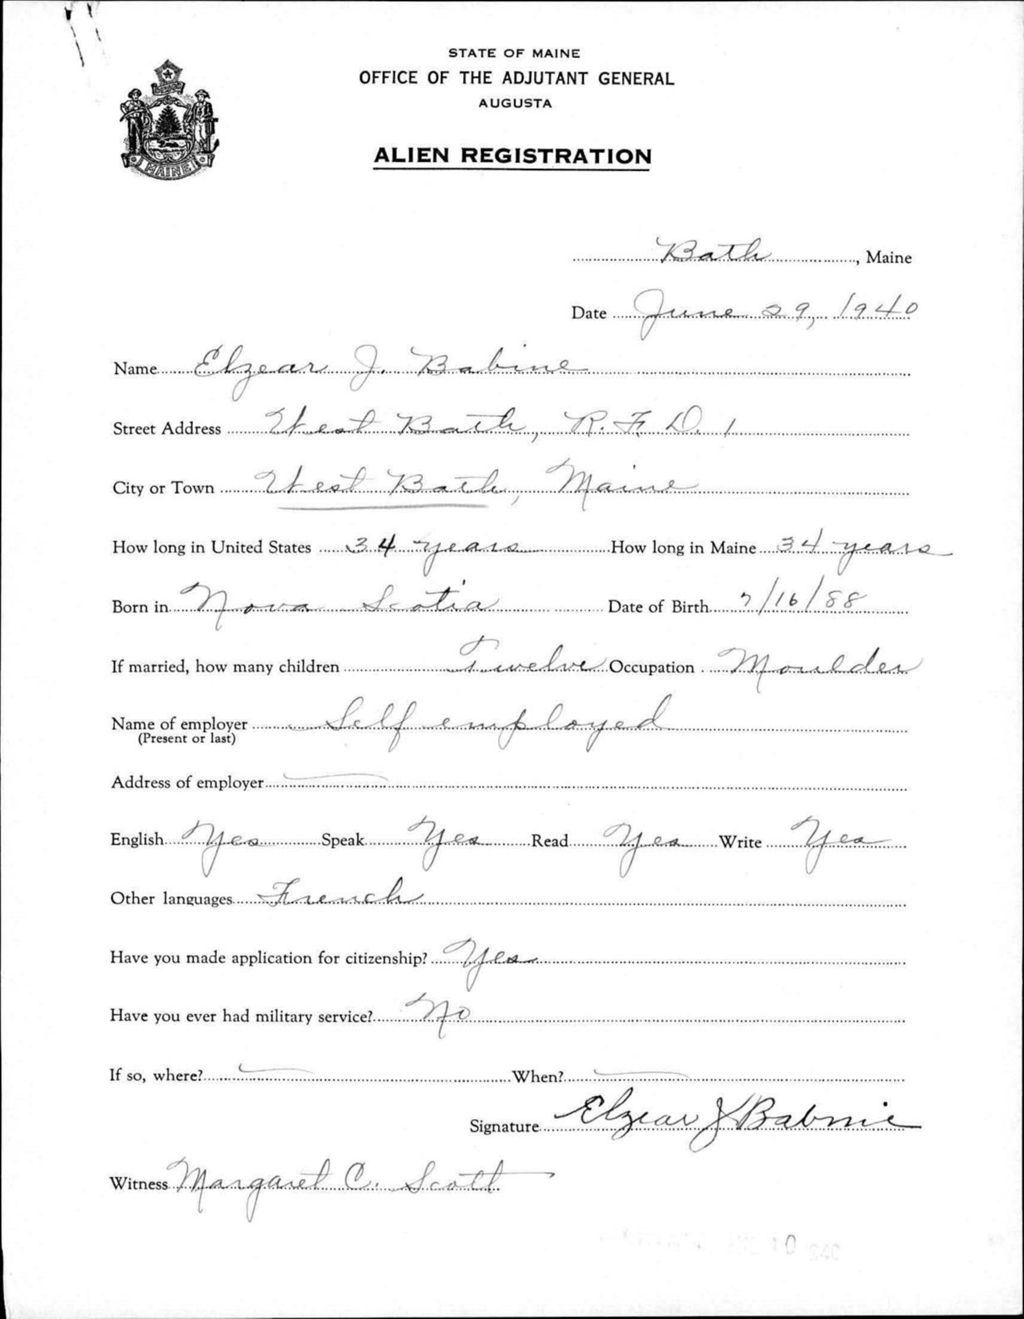 STATE OF MAINE
OFFICE OF THE ADJUTANT GENERAL
AUGUSTA
ALIEN REGISTRATION
MAINE
Bath, Maine
Date June 29, 1940
Name Elzear J. Babine
Street Address West Bath, R. F. D. 1
City or Town West Bath, Maine
How long in United States 34 years How long in Maine 34 years
Born in Nova Scotia Date of Birth 7/16/88
If married, how many children Twelve Occupation Moulder
Name of employer Self employed
(Present or last)
Address of employer —
English Yes Speak Yes Read Yes Write Yes
Other languages French
Have you made application for citizenship? Yes
Have you ever had military service? No
If so, where? — When? —
Signature Elzear J Babine
Witness Margaret C. Scott